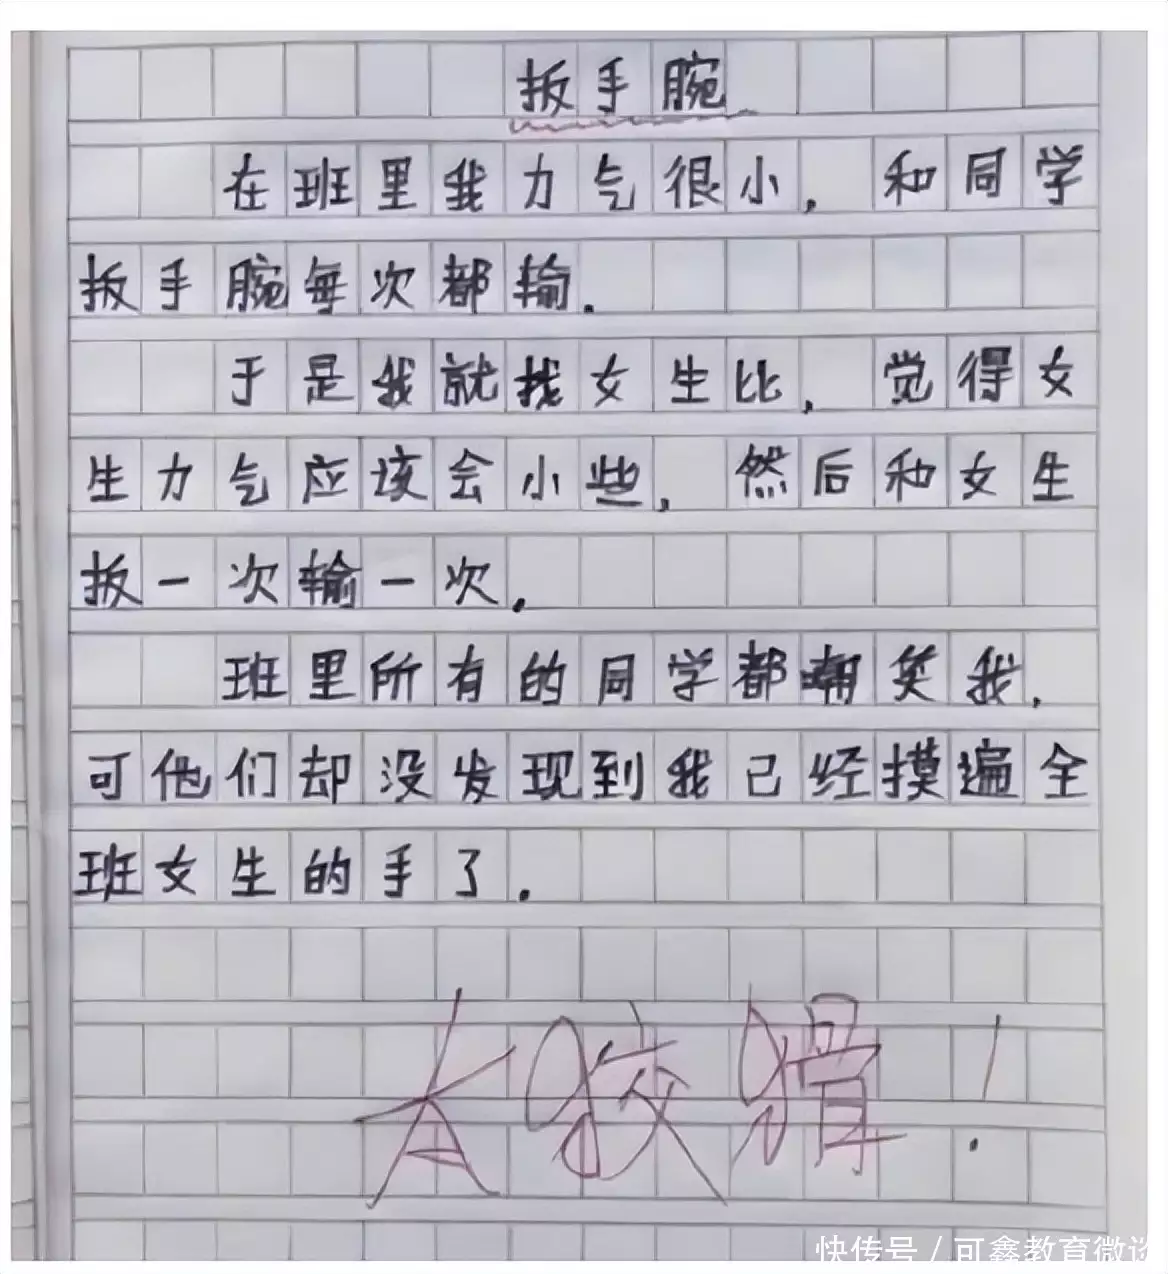 扳手腕
在班里我力气很小，和同学
扳手腕每次都输.
于是我就找女生比，觉得女
生力气应该会小些，然后和女生
扳一次输一次.
班里所有的同学都嘲笑我，
可他们却没发现到我已经摸遍全
班女生的手了.
太狡猾！
快传号 / 可鑫教育微谈